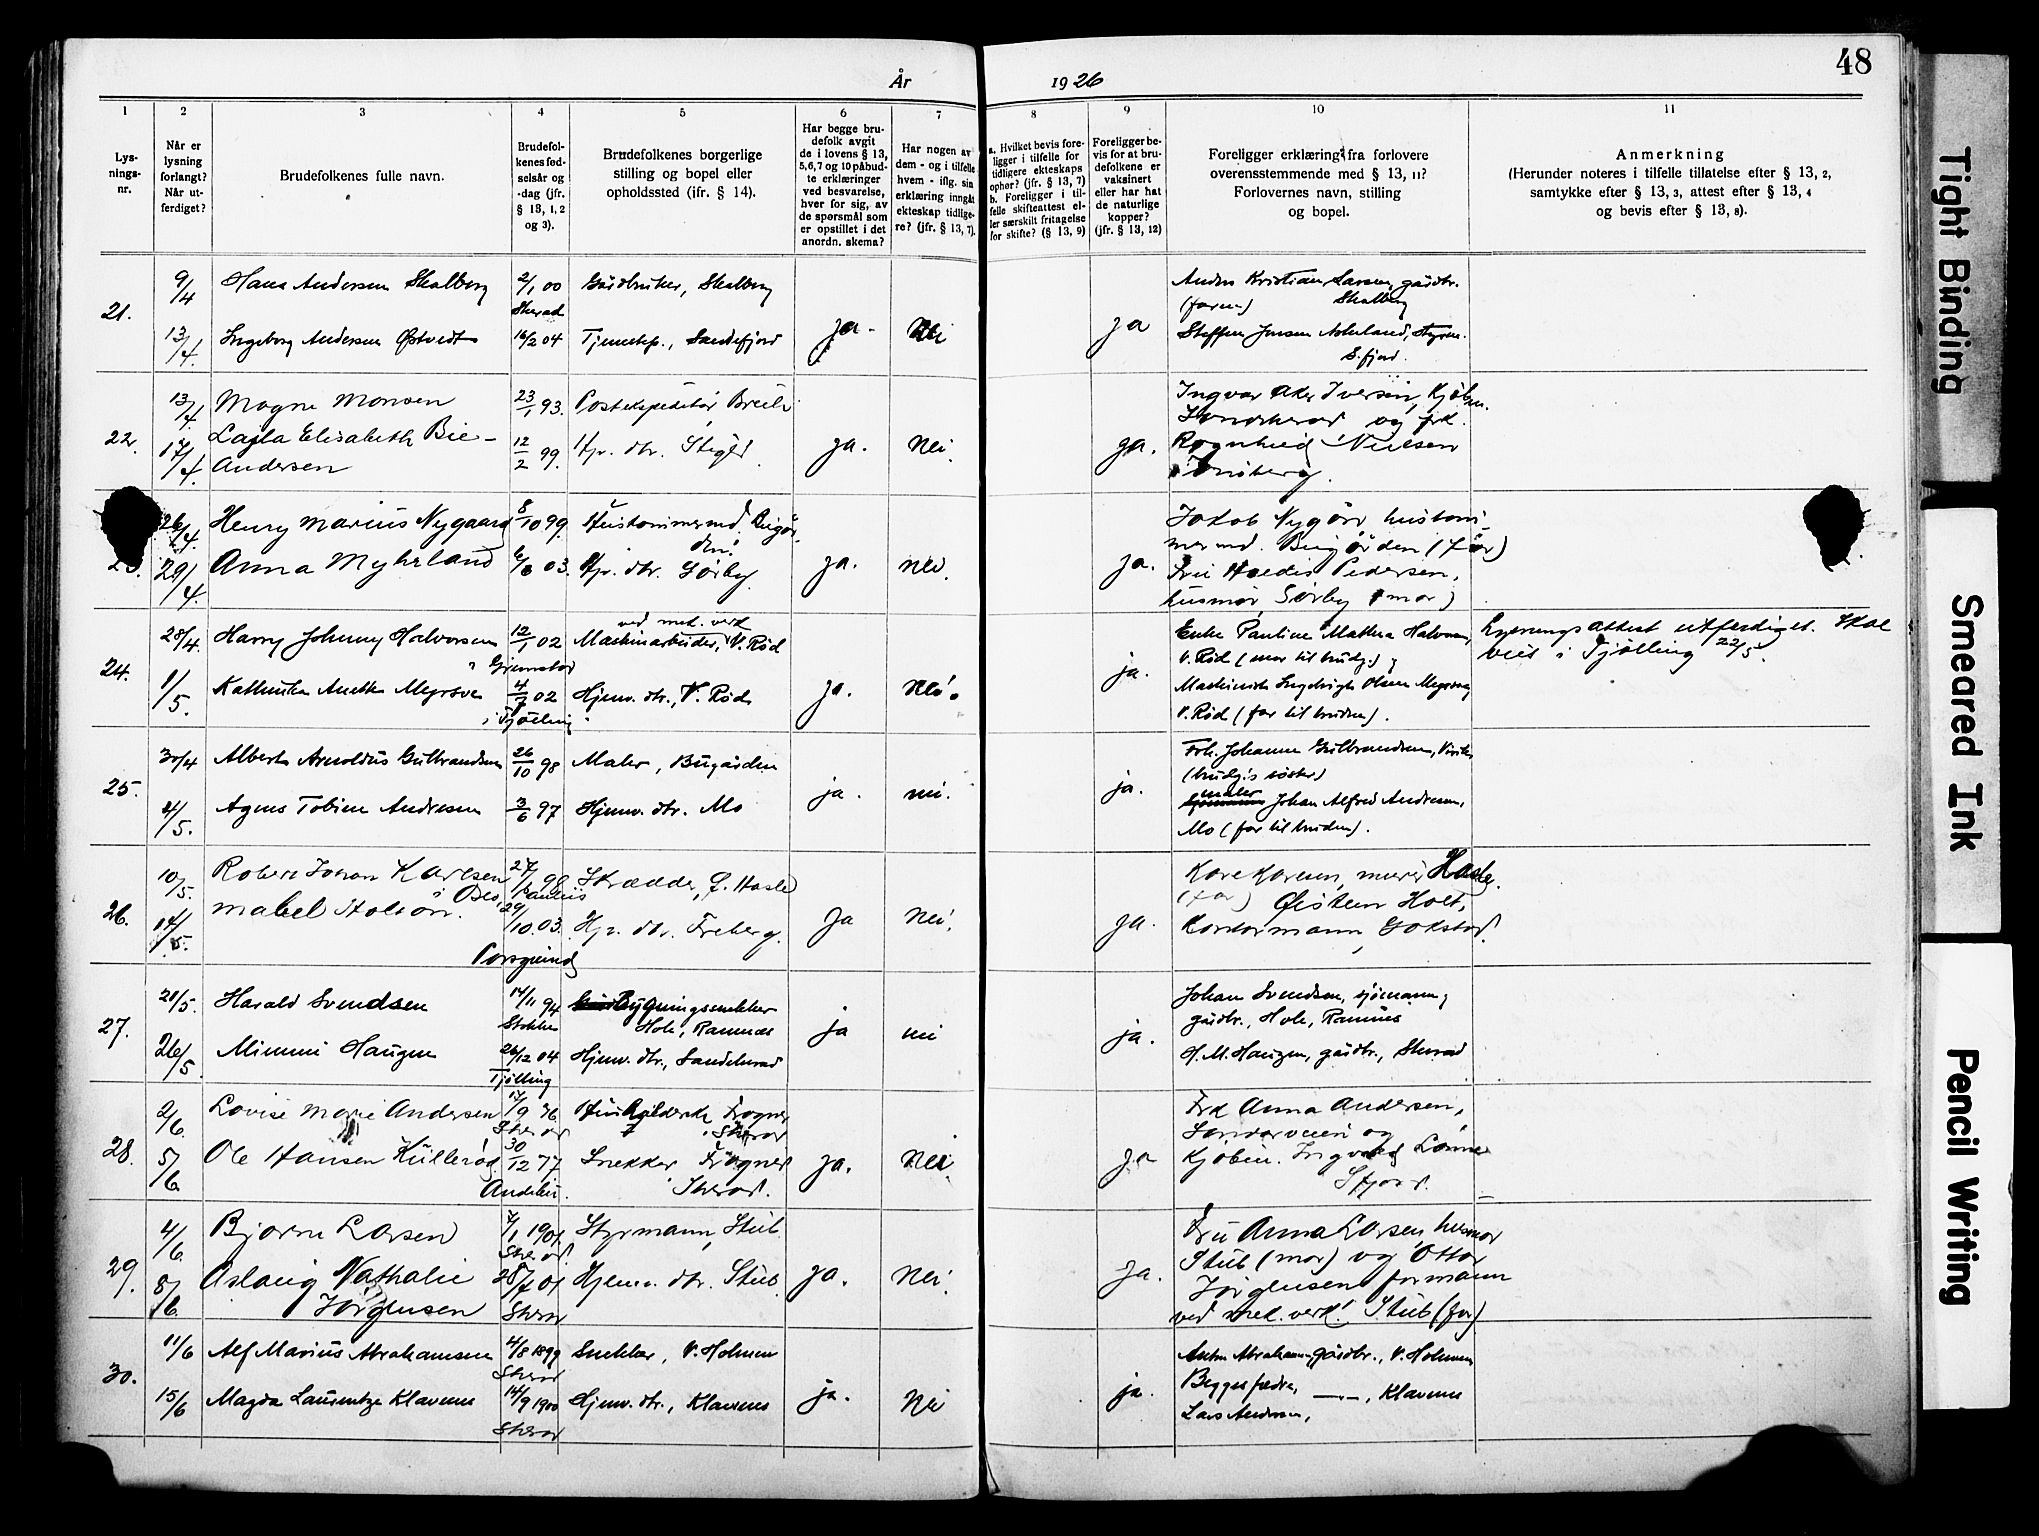 48
År 1926
1 2 3 4 5 6 7 8 9 10 11
Lys-
nings-
nr.
Når er
lysning
forlangt?
Når ut-
ferdiget?
Brudefolkenes fulle navn.
Brudefol-
kenes fød-
selsår og
-dag (jfr.
§ 13, 1, 2
og 3).
Brudefolkenes borgerlige
stilling og bopel eller
opholdssted (ifr. § 14).
Har begge bru-
defolk avgit
de i lovens § 13,
5,6,7 og 10 påbud-
te erklæringer
ved besvarelse,
hver for sig, av
de spørsmål som
er opstillet i det
anordn. skema?
Har nogen av
dem - og i tilfelle
hvem - iflg. sin
erklæring inngåt
ekteskap tidlige-
re? (jfr. § 13, 7).
a. Hvilket bevis fore-
ligger i tilfelle for
tidligere ekteskaps
ophør? (jfr. § 13, 7)
b. Foreligger i til-
felle skifteattest el-
ler særskilt fritagelse
for skifte? (§ 13, 9)
Foreligger be-
vis for at bru-
defolkene er
vaksinert
eller har hat
de naturlige
kopper?
(jfr. § 13, 12)
Foreligger erklæring fra forlovere
overensstemmende med § 13, 11?
Forlovernes navn, stilling
og bopel.
Anmerkning
(Herunder noteres i tilfelle tillatelse efter § 13, 2,
samtykke efter § 13, 3, attest efter § 13, 4
og bevis efter § 13, 8).
21.
9/4 Hans Andersen Skalberg 2/1 00 Gårdbruker, Skalberg
Skerad
13/4 Ingeborg Andersen Østvedt 16/2 04 Tjenestep., Sandefjord
ja. Nei ja
Anders Kristian Larsen, gårdbr.
(faren) Skalberg
Steffen Jensen Askeland, styrm.
S.fjord.
22.
13/4 Magne Monsen 23/1 93. Postekspeditør Breili
17/4 Lajla Elisabeth Bie-
Andersen 12/2 99. Hjv. dtr. Stigld
ja. Nei. ja.
Ingvar Aker Iversen, Kjøbm.
Sandeherad og frk.
Ragnhild Nielsen
Tønsberg.
26/4. Henry Marius Nygaard 8/10 99. Hustømmermd. Bugår-
den.
29/4. Anna Myhrland 6/8 03. Hjv. dtr. Sørby.
ja. nei. ja.
Jakob Nygård hustøm-
mermd. Bugården (Far)
Fru Hældis Pedersen,
husmor, Sørby (mor)
24.
28/4. Harry Johnny Halvorsen 12/1 02 Maskinarbeider, V. Rød
ved mek. verk
i Grimstad
1/5. Kathinka Anette Meyrsve 4/7 02 Hjemv. dtr., V. Rød
i Tjølling
ja. Nei. ja.
Enke Pauline Mathea Halvorsen,
V. Rød (mor til brudg.)
Maskinist Ingebrigt Olsen
V. Rød (far til bruden).
Lysningsattest utferdiget. Skal
vies i Tjølling 22/5.
25.
30/4 Albert Arnoldus Gulbrandsen 26/10 98 Maler, Bugården
4/5. Agnes Tobine Andresen 3/6 97 Hjemv. dtr. Mo
ja. nei. ja.
Frk. Johanne Gulbrandsen,
(brudg.s søster)
maler
Johan Alfred Andresen,
Mo (far til bruden).
26.
10/5. Robert Johan Karlsen 27/1 98 Skredder, Ø. Hasle
i Oslo, Paulus
14/5. Mabel Holtan. 29/10. 03. Hjv. dtr. Freberg.
Porsgrund
ja Nei. ja.
Kare Karlsen, murer Hasle.
(far) Øistein Holt,
Kontormann, Gokstad.
27.
21/5. Harald Svendsen 14/11 94 Bygningssnekker
Stokke Hole, Ramnæs
26/5. Mimmi Haugen 26/12 04 Hjemv. dtr., Sandeherad
Tjølling
ja nei ja.
Johan Svendsen, sjømann,
gårdbr., Hole, Ramnes
H. M. Haugen, gårdbr., Skerad
28.
2/6. Lovise Marie Andersen 17/9 76 Frogner
Skerad Skerad
5/6. Ole Hansen Küllerød 30/12 77 Snekker Frogner
Andebu. Skerad.
ja. Nei ja
Frk Anna Andersen,
Landerveien og
Kjøbm. Ingvald Lønne
Sfjord.
29.
4/6 Bjarne Larsen 7/1 1901. Styrmann, Stub.
Skerad.
8/6. Aslaug Nathalie
Jørgensen 28/7 01 Hjemv. dtr. Stub.
Skerad
ja. Nei. ja.
Fru Anna Larsen, husmor
Stub (mor) og Ottar
Jørgensen formann
ved mek. verk. Stub (far)
30.
11/6 Alf Marius Abrahamsen 4/8 1899 Snekker, V. Holmen
Skerad
15/6 Magda Laurentze Klavenes 14/9 1900 Hjemv. dtr., Klavenes
Skerad
ja. Nei ja.
Anton Abrahamsen gårdbr., V. Holmen
Begges fædre,
Lars Andersen, —"—, Klavenes
Tight Binding
Smeared Ink
Pencil Writing